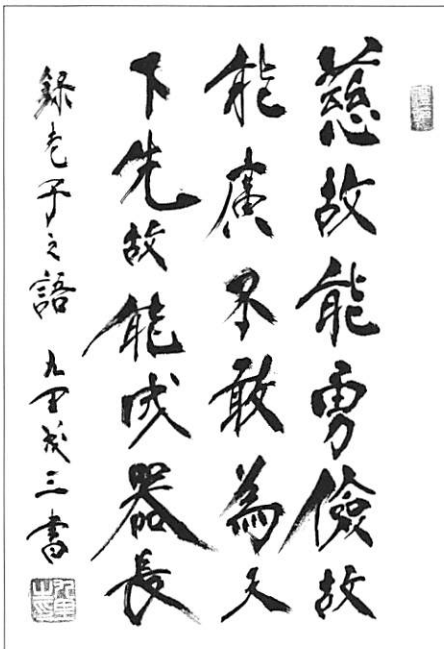 慈故能勇儉故
能廣不敢為天
下先故能成器長
録老子之語 九里茂三書